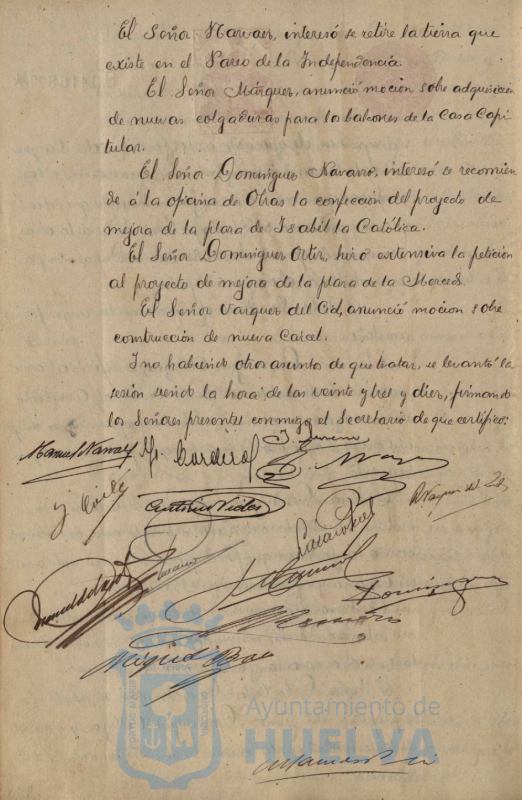 El Señor Narvaez, interesó se retire la tierra que
existe en el Paseo de la Independencia.
El Señor Márquez, anunció mocion sobre adquisición
de nuevas colgaduras para los balcones de la Casa Capi
tular.
El Señor Dominguez Navarro, interesó se recomien
de á la oficina de Obras la confección del proyecto de
mejora de la plaza de Isabel la Católica.
El Señor Dominguez Ortiz, hizo extensiva la petición
al proyecto de mejora de la plaza de la Merced.
El Señor Vazquez del Cid, anunció mocion sobre
construcción de nueva Carcel.
I no habiendo otros asuntos de que tratar, se levantó la
sesión siendo la hora de las veinte y tres y diez, firmando
los Señores presentes conmigo el Secretario de que certifico:
Manuel Narvaez
M. Cordero
Antonio Vides
Dominguez
Romero
Miguel
PORTUS MARIS
ET TERRÆ
CUSTODIA
Ayuntamiento de
HUELVA